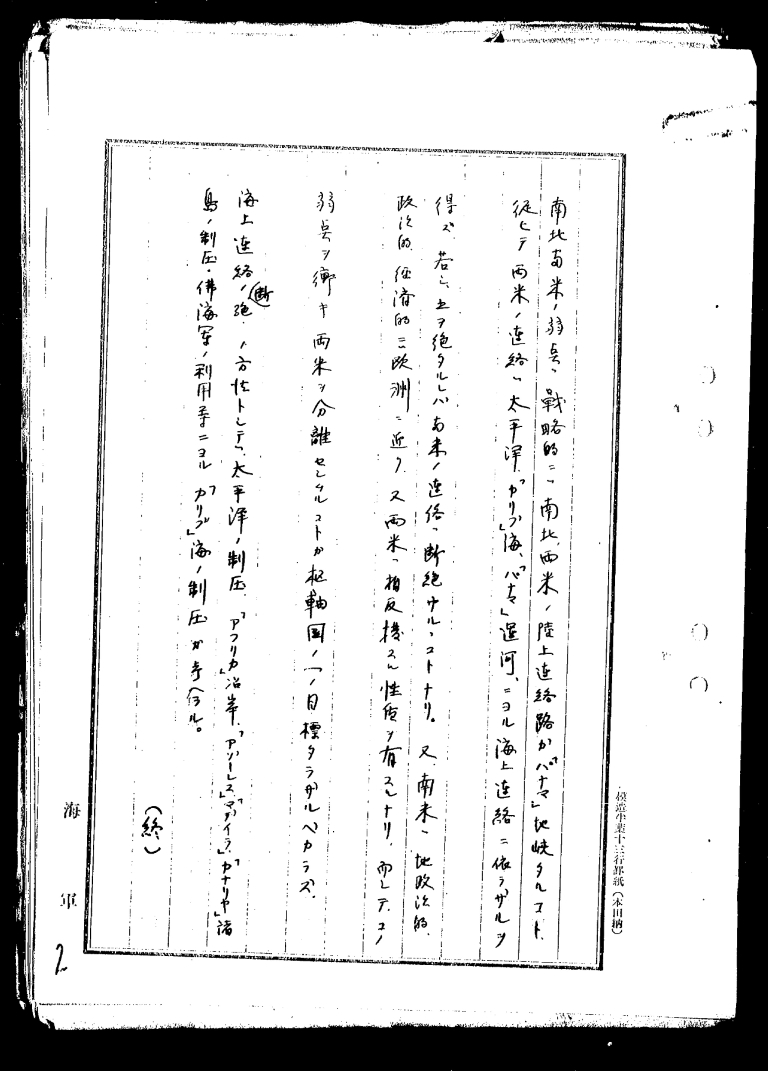 南北両米ノ弱点ハ戦略的ニハ南北両米ノ陸上連絡路ガ「パナマ」地峡タルコト、
従ヒテ両米ノ連絡ハ太平洋、「カリブ」海、「パナマ」運河、ニヨル海上連絡ニ依ラザルヲ
得ズ、若シ之ヲ絶タルレバ両米ノ連絡ハ断絶サルヽコトナリ。又、南米ハ地政治的、
政治的、経済的ニ欧洲ニ近ク、又両米ハ相反撥スル性質ヲ有スルナリ、而シテコノ
弱点ヲ衝キ両米ヲ分離セシムルコトガ枢軸国ノ一ノ目標タラザルベカラズ、
海上連絡ノ絶断ノ方法トシテハ、太平洋ノ制圧、「アフリカ」沿岸、「アゾーレス」「マデイラ」「カナリヤ」諸
島ノ制圧・佛海軍ノ利用等ニヨル「カリブ」海ノ制圧ガ考ヘラル。
(終)
海軍
模造半葉十三行罫紙(本田納)
2